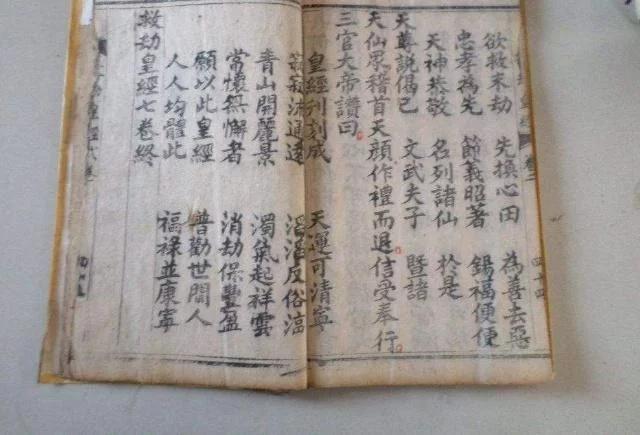 欲救末劫　先換心田　為善去惡
忠孝為先　節義昭著　錫福便便
天神恭敬　名列諸仙　於是
天尊説偈已　文武夫子　暨諸
天仙眾稽首天顏作禮而退信受奉行
三官大帝讚曰
皇經刊刻成　天運可清寧
流通遠　反俗
青山開麗景　濁氣起祥雲
常懷無懈者　消劫保豐盈
願以此皇經　普勸世間人
人人均體此　福祿並康寧
救劫皇經七卷終